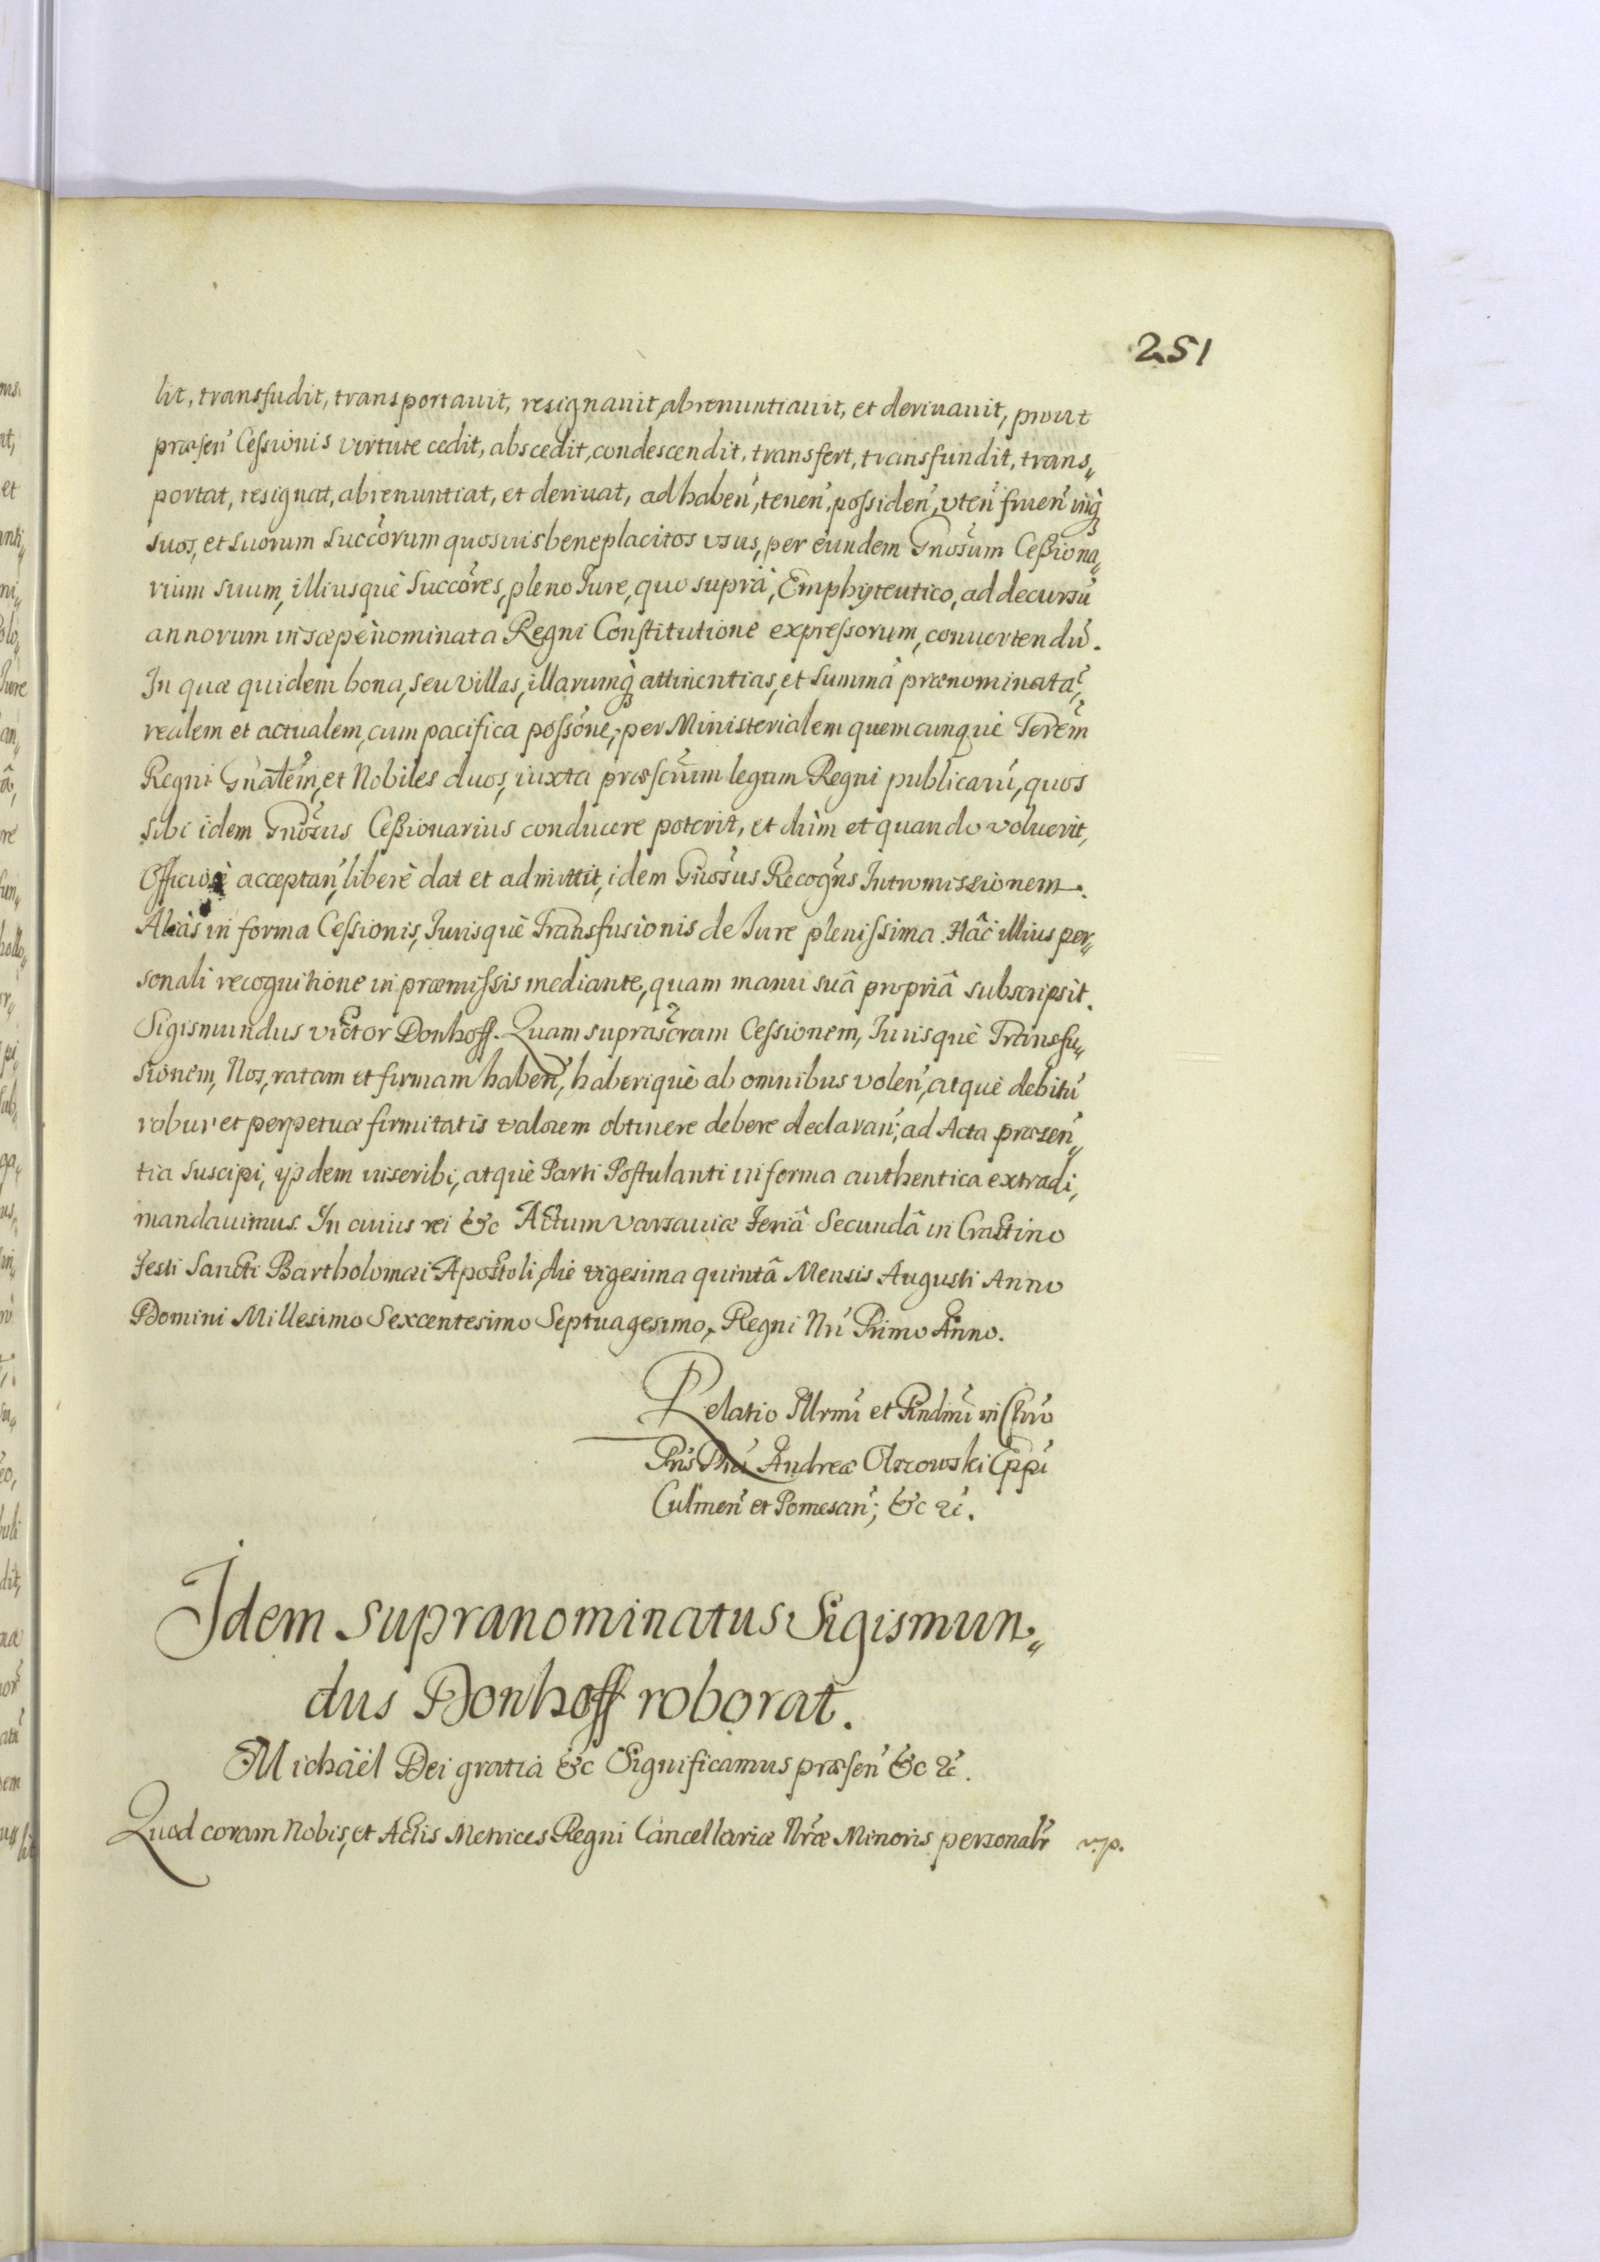 251
lit, transfudit, transportauit, resignauit, abrenuntiauit, et deriuauit, prout
præsen̄ Cessionis virtute cedit, abscedit, condescendit, transfert, transfundit, trans„
portat, resignat, abrenuntiat, et deriuat, ad haben̄, tenen̄, possiden̄, vten̄ fruen̄ inq̷
suos, et suorum Succōrum quosuis beneplacitos vsus, per eundem Gnōsum Cessiona„
rium suum, illiusquè Succōres, pleno Iure, quo suprà, Emphyteutico, ad decursū
annorum in sæpènominata Regni Constitutione expressorum, conuertendū.
In quæ quidem bona, seu villas, illarumq̷ attinentias, et summā prænominatā,
realem et actualem, cum pacifica possōne, per Ministerialem quemcunquè Terēm
Regni Gnālem, et Nobiles duos, iuxta præscrūm legum Regni publicarū, quos
sibi idem Gnōsus Cessionarius conducere poterit, et dùm et quando voluerit,
Officiosè acceptan̄, liberè dat et admittit, idem Gnōsus Recogn̄s Intromissionem.
Aliàs in forma Cessionis, Iurisquè Transfusionis de Iure plenissima. Hâc illius per„
sonali recognitione in præmissis mediante, quam manu suâ propriâ subscripsit.
Sigismundus victor Donhoff. Quam suprascr̄am Cessionem, Iurisquè Transfu„
sionem, Nos, ratam et firmam haben̄, haberiquè ab omnibus volen̄, atquè debitū
robur et perpetuæ firmitatis valorem obtinere debere declaran̄, ad Acta præsen„
tia suscipi, ijsdem inscribi, atquè Parti Postulanti in forma authentica extradi,
mandauimus. In cuius rei &c Actum Varsauiæ Feriâ Secundâ in Crastino
Festi Sancti Bartholomæi Apostoli, die vigesima quintâ Mensis Augusti Anno
Domini Millesimo Sexcentesimo Septuagesimo, Regni Nrī Primo Anno.
Relatio Illrmī et Rndmī in Chrō
Pris Dnī Andreæ Olszowski Eppī
Culmen̄ et Pomesan̄; &c &c.
Idem supranominatus Sigismun„
dus Donhoff roborat.
Michaël Dei gratia &c Significamus præsen̄ &c &c.
Quod coram Nobis, et Actis Metrices Regni Cancellariæ Nrǣ Minoris personalr̄